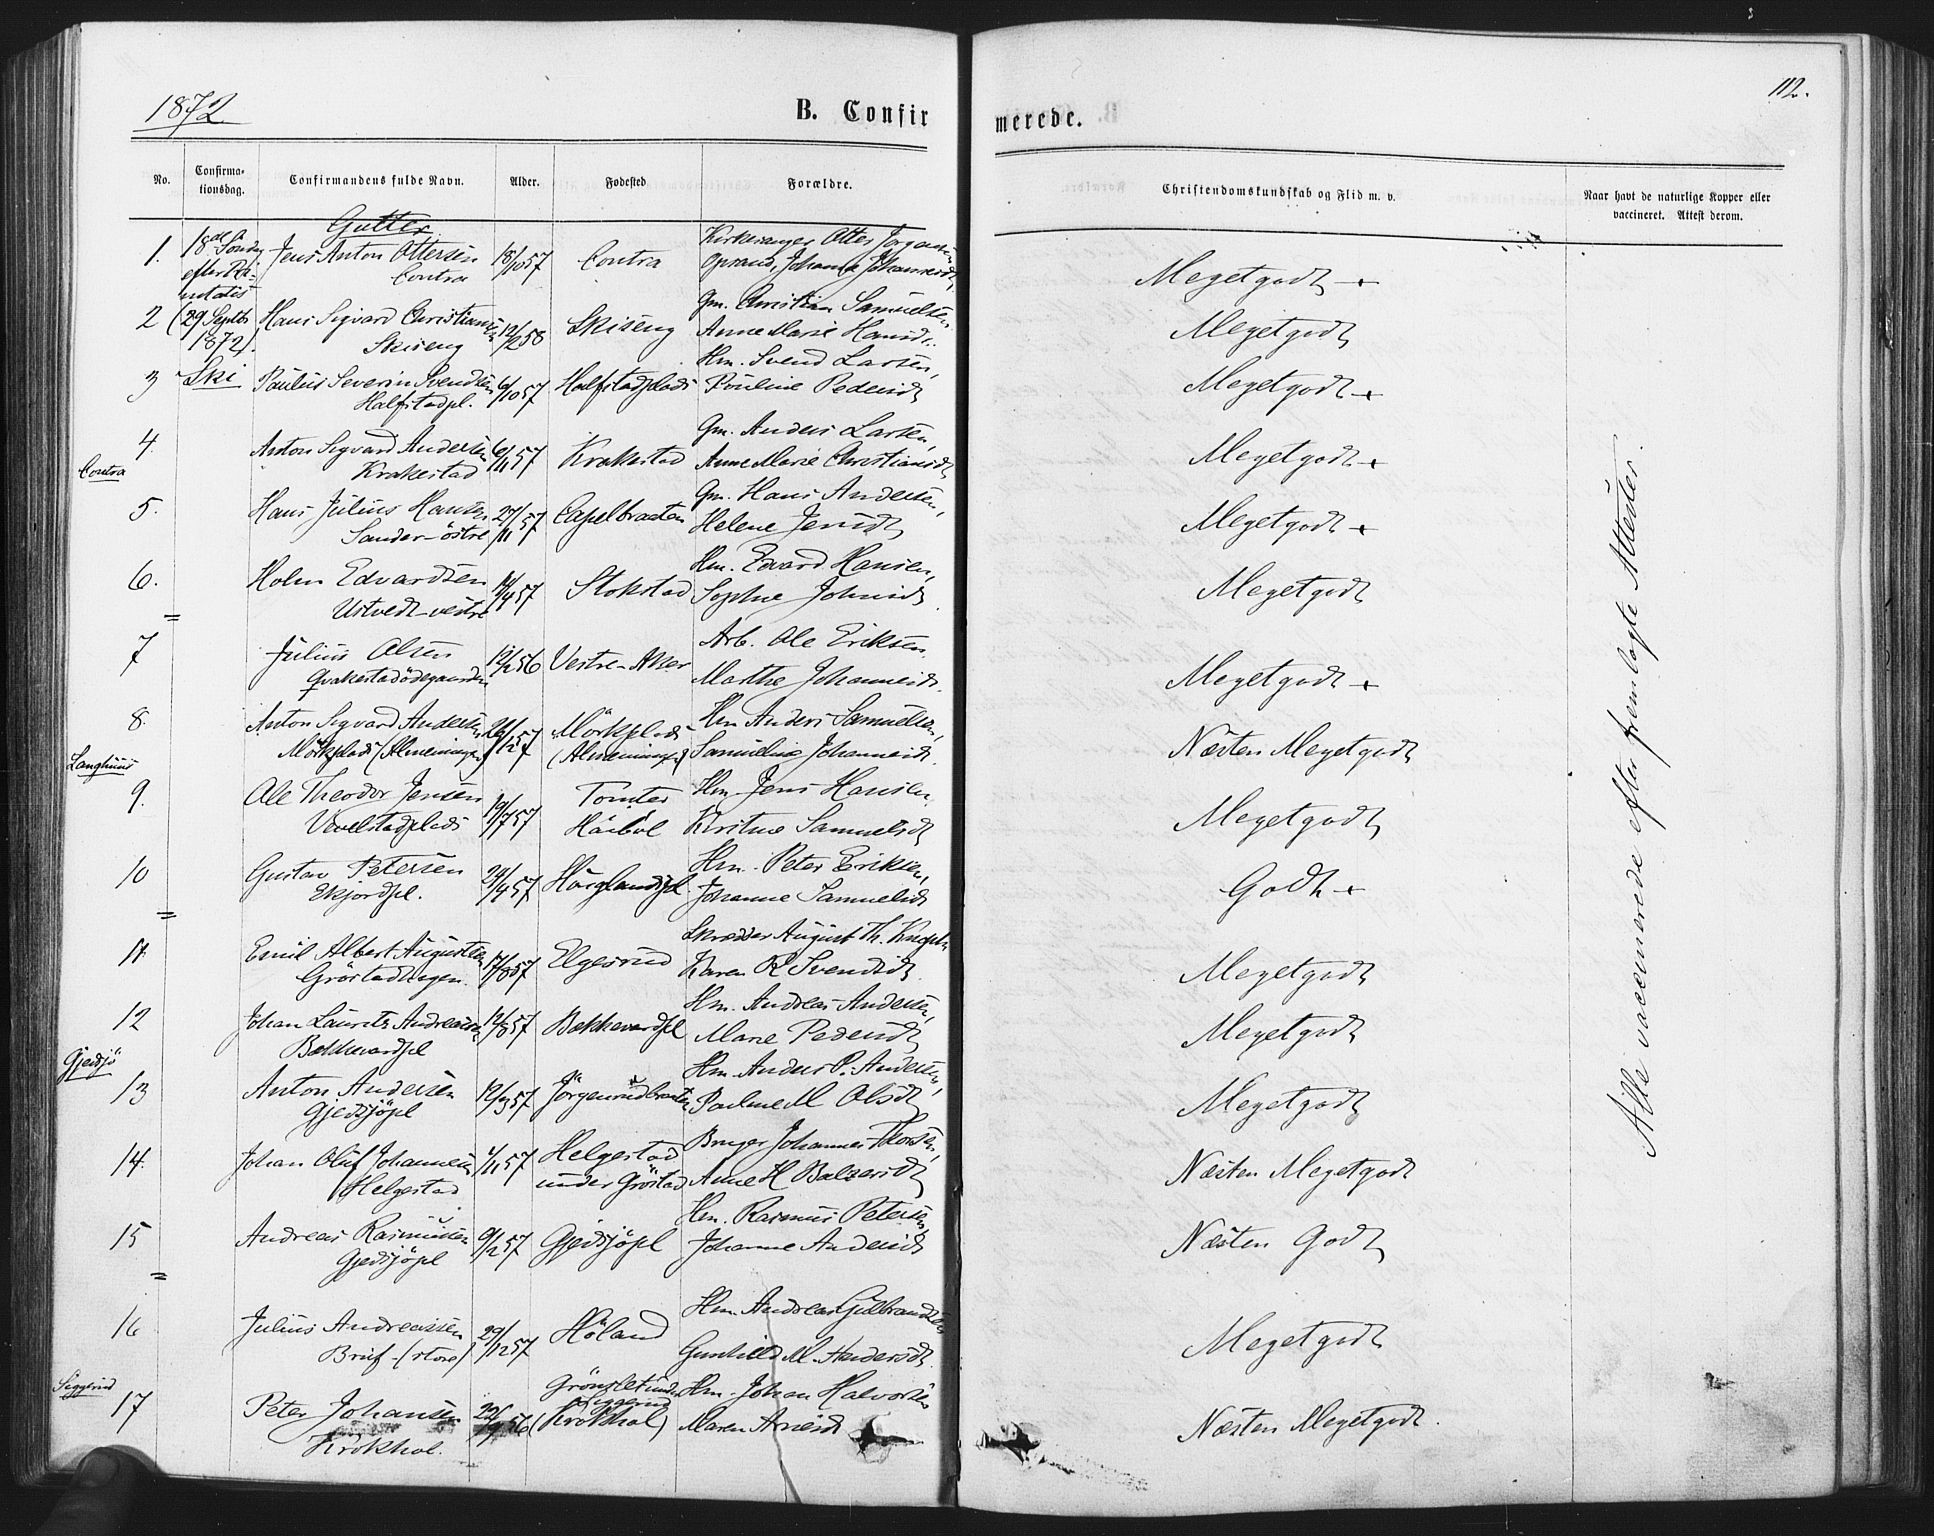 1872
B. Confirmerede.
112.
No.
Confirmationsdag.
Confirmandens fulde Navn.
Alder.
Fødested
Forældre.
Christendomskundskab og Flid m. v.
Naar havt de naturlige Kopper eller vaccineret. Attest derom.
Gutter
1. 18de Søndag efter Jens Anton Ottersen Contra 18/10 57 Contra Kirkesanger Otter Jørgensen Opsand, Johanne Johannesdt. Megetgodt +
2 (29 Septbr 1872). Hans Sigvard Christiansen Skiseng 12/2 58 Skiseng Gm. Christian Samuelsen, Anne Marie Hansdt. Megetgodt
3 Ski Paulus Severin Svendsen Halfstadpl. 6/10 57 Halfstadplads Hm. Svend Larsen, Pouline Pedersdt Megetgodt +
4. Anton Sigvard Andersen Krakestad 6/11 57 Krakestad Gm. Anders Larsen, Anne Marie Christiansdt Megetgodt +
Contra
5. Hans Julius Hansen Sander-östre 27/11 57 Capelbraaten Gm. Hans Andersen, Helene Jensdt Megetgodt +
6. Holm Edvardsen Ustvedt-vestre 14/4 57 Stokstad Hm. Edvard Hansen, Sophie Johnsdt. Megetgodt
=
7 Julius Olsen Qvakestadödegaarden 12/2 56 Vestre-Aker Arb. Ole Eriksen. Marthe Johannesdt. Megetgodt +
8. Anton Sigvard Andersen Mörkplads (Almeningen) 26/12 57 Mörkplads (Almeningen) Hm Anders Samuelsen, Samueline Johannesdt. Næsten Megetgodt
Langhuus
9. Ole Theodor Jensen Vevelstadplads 19/7 57 Tomter Haabøl Hm Jens Hansen. Kristine Samuelsdt Megetgodt
10 Gustav Petersen Ekjordpl. 29/4 57 Hauglandspl. Hm. Peter Eriksen, Johanne Samuelsdt Godt +
=
11. Emil Albert Augustsen 17/8 57 Elgesrud Skræder August Th. Karen K Svendsdt Megetgodt
12 Johan Lauritz Andreasen Bækkevardpl 12/8 57 Bækkevardpl Hm. Andreas Andersen, Marie Pedersdt Megetgodt
Gjedsjö
13 Anton Andersen Gjedsjöpl 12/3 57 Jörgenrudbraaten Hm. Anders P. Andersen, Pauline M Olsdt Megetgodt
14. Johan Oluf Johannesen Helgestad 1/11 57 Helgestad under Gröstad Bruger Johannes Thorsen, Anne H Balzersdt Næsten Megetgodt
15 Andreas Rasmussen Gjedsjöpl 9/12 57 Gjedsjöpl Hm. Rasmus Petersen, Johanne Andersdt Næsten Godt
=
16 Julius Andreassen Bruf-(store) 29/12 57 Höland Hm. Andreas Gulbrandsen Gunhild M. Andersdt. Megetgodt
Siggerud
17 Peter Johansen Krokhol. 22/9 56 Grönslet under Siggerud (Krokhol) Hm. Johan Halvorsen Maren Arnesdt Næsten Megetgodt.
Alle vaccinerede efter fremlagte Attester.